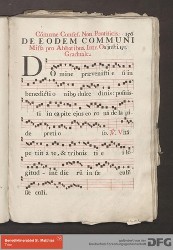 Cõmune Confeſ. Non Pontificis.
DE EODEM COMMUNI
Miſſa pro Abbatibus. Intr. Os juſti. 
Graduale.
Domine præveniſti e um in
benedictio nibus dulce dinis: poſuiſ
ti in capite ejus co ro nam de la pi
de pretio ſo. ℣. Vitā
petiit a te, & tribuiſti e i lō
gitudinē diē rū in ſæ culū
ſæ culi.
DFG